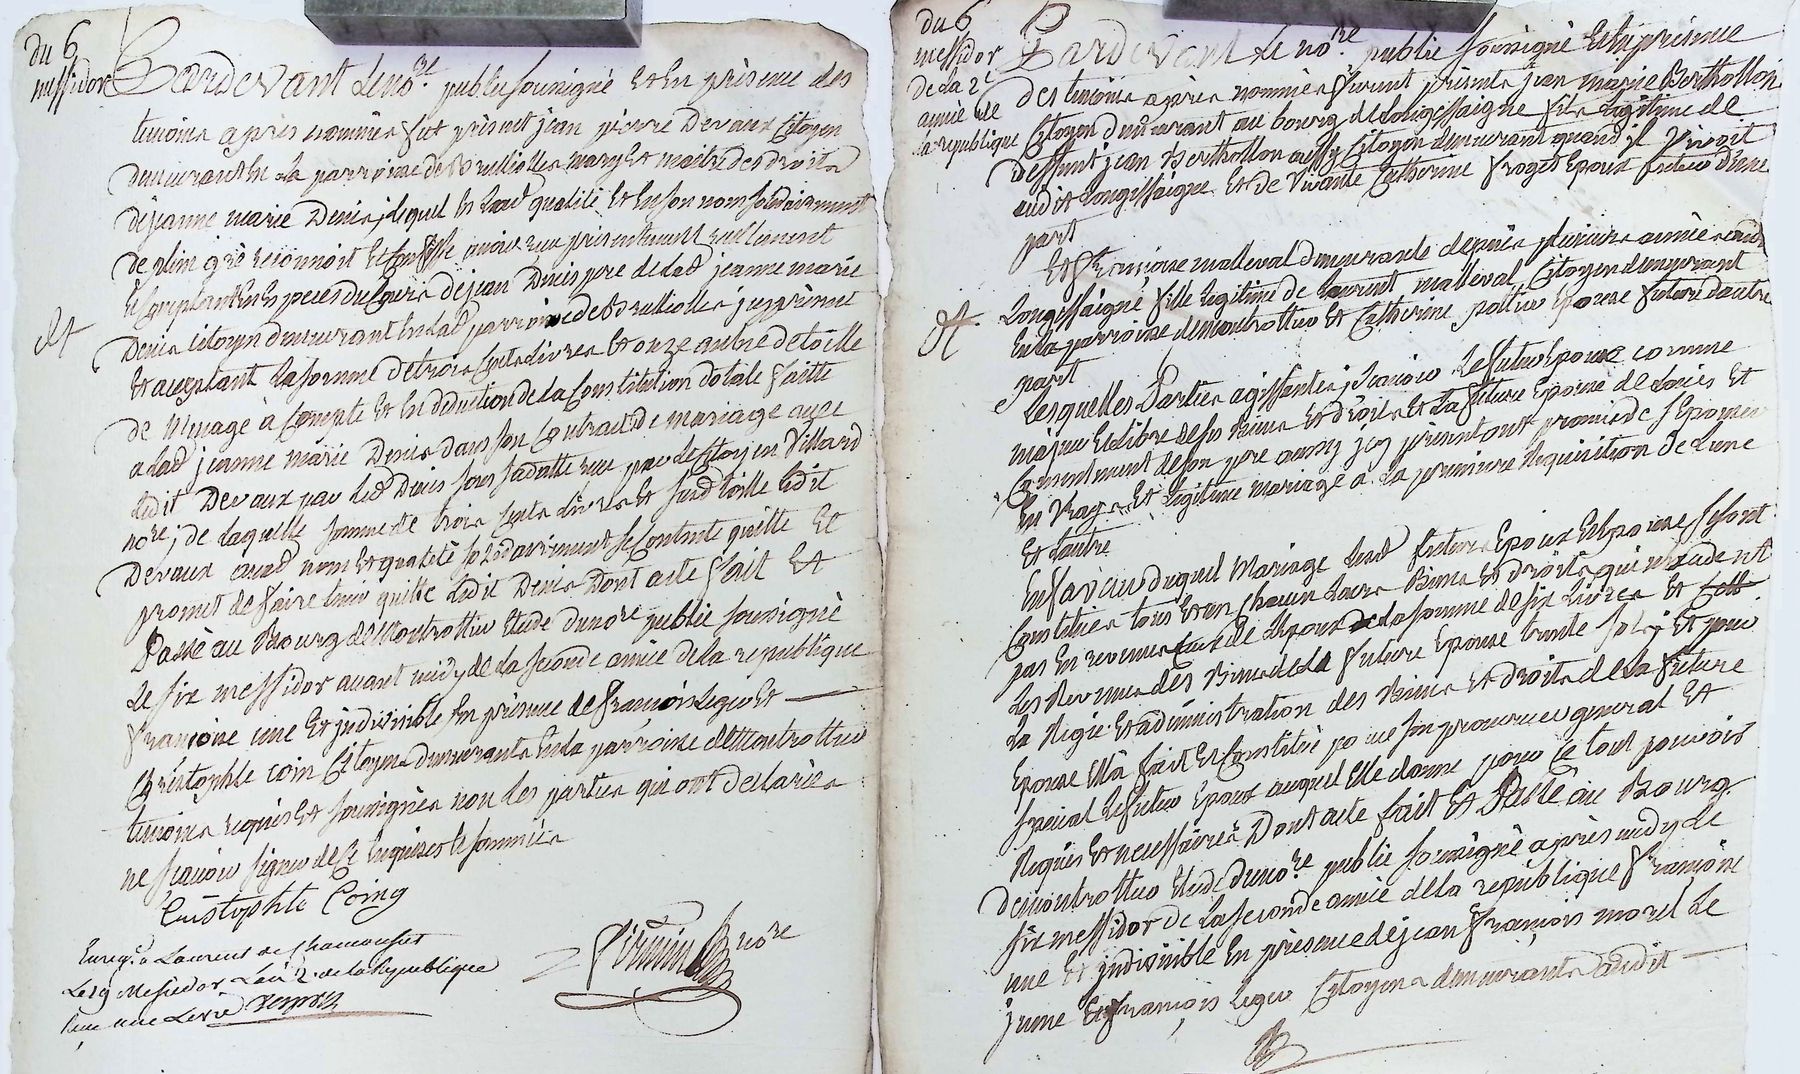 du 6
messidor
Pardevant Le no.re public soussigné Et En présence des
temoins apres nommés fut présent jean pierre Devaux Citoyen
demeurant En La parroisse de Brullioles mary Et maitre des droits
de jeanne marie Denis, lequel En lad. qualité Et En son nom solidairement
de plein gré reconnoit Et Confesse avoir reçu présentement reellement
Et Comptant En Especes du Cours de jean Denis pere de lad. jeanne marie
Denis Citoyen demeurant En lad. parroisse de Brullioles jcy présent
Et acceptant La somme de trois Cents livres Et onze aulnes de toille
de menage à Compte Et En deduction de la Constitution dotale faitte
a lad. jeanne marie Denis dans son Contrat de mariage avec
ledit Devaux par led. Denis sous sa datte reçu par le Citoyen Villard
no.re, de laquelle somme de trois Cents livres Et susd. toille ledit
Devaux auxd. nom Et qualité solidairement se Contente quitte Et
promet de faire tenir quitte ledit Denis Dont acte fait Et
Passé au Bourg de Montrottier Etude du no.re public soussigné
Le six messidor avant midy de la seconde année de la republique
françoise une Et jndivisible En présence de françois Leger Et
Christophle coin Citoyens demeurants En la parroisse de Montrottier
temoins requis Et soussignés non les parties qui ont declarées
ne sçavoir signer de Ce Enquises Et sommées
Cristophle Coing
Enreg.é a Laurent de Chamousset
Le 19 Messidor L'an 2.e de la République
Reçu une Livre
Firmin no.re
du 6
messidor
de la 2.e
année de
la republique
Pardevant Le no.re public soussigné Et En présence
des temoins après nommés furent présents jean marie Berthollon
Citoyen demeurant au bourg de Longessaigne fils Légitime de
deffunt jean Berthollon aussy Citoyen demeurant quand il vivoit
audit Longessaigne Et de vivante Catherine froget Epoux futur d'une
part
Et françoise malleval demeurante depuis plusieurs années aud.
Longessaigne fille Legitime de Laurent malleval Citoyen demeurant
En la parroisse de montrottier Et Catherine pottier Epouse future d'autre
part
Lesquelles Parties agissantes, sçavoir Le futur Epoux comme
majeur Et libre de ses Biens Et droits Et La future Epouse de L'avis Et
Consentement de son pere aussy jcy présent ont promis de s'Epouser
En vray Et Legitime mariage a La premiere requisition de L'une
Et L'autre
En faveur duquel Mariage Lesd. futurs Epoux Et Epouse se sont
Constitués tous Et un Chacun Leurs Biens Et droits qui n'excedent
pas En revenus Ceux de L'Epoux de la somme de six Livres Et
Les Revenus des Biens de La future Epouse trente sols, Et pour
La Regie Et administration des Biens Et droits de la future
Epouse Ella fait Et Constitué pour son procureur general Et
special Le futur Epoux auquel Elle donne pour Ce tout pouvoir
Requis Et necessaires Dont acte fait Et Passé au Bourg
de montrottier Etude du no.re public soussigné après midy Le
six messidor de La seconde année de la republique françoise
une Et jndivisible En présence de jean françois morel Le
jeune Et françois Leger Citoyens demeurants audit